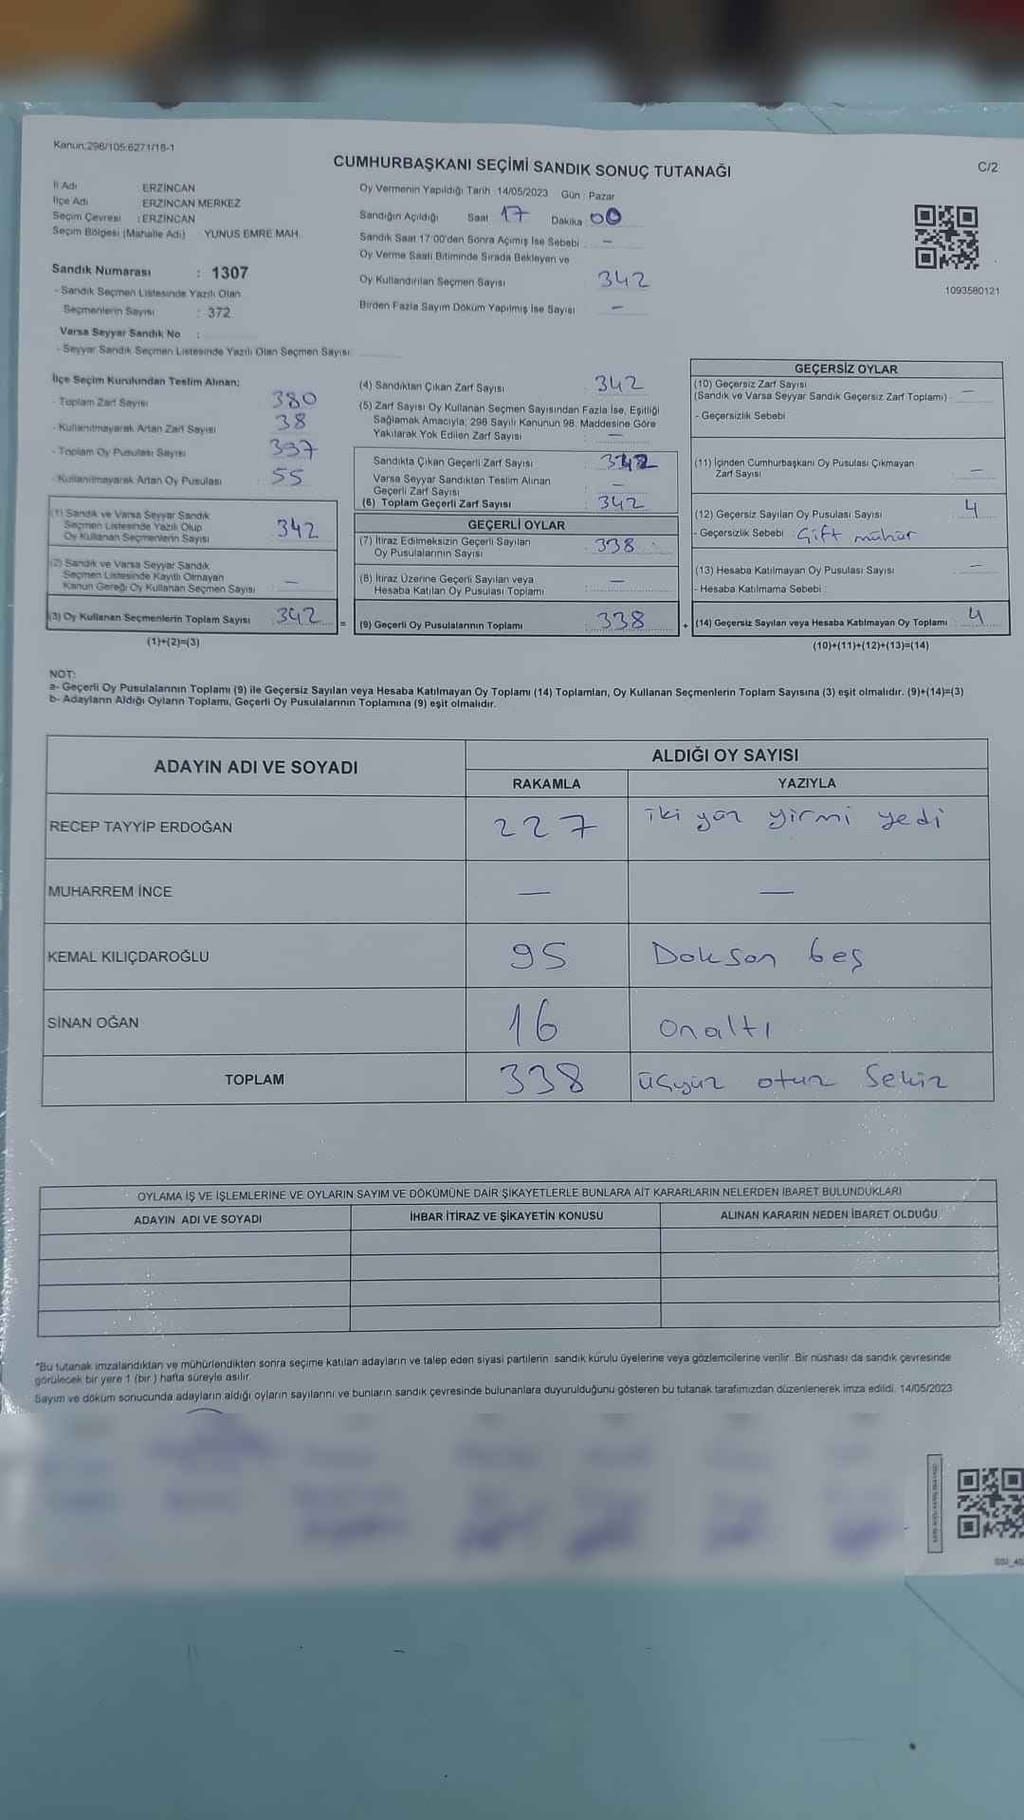 Kanun:298/105:6271/18-1
CUMHURBAŞKANI SEÇİMİ SANDIK SONUÇ TUTANAĞI
C/2
İl Adı ERZİNCAN
İlçe Adı ERZİNCAN MERKEZ
Seçim Çevresi : ERZİNCAN
Seçim Bölgesi (Mahalle Adı) YUNUS EMRE MAH.
Oy Vermenin Yapıldığı Tarih 14/05/2023 Gün : Pazar
Sandığın Açıldığı Saat 17 Dakika 00
Sandık Saat 17:00'den Sonra Açımış İse Sebebi –
Oy Verme Saati Bitiminde Sırada Bekleyen ve
Oy Kullandırılan Seçmen Sayısı 342
Birden Fazla Sayım Döküm Yapılmış İse Sayısı –
1093580121
Sandık Numarası : 1307
- Sandık Seçmen Listesinde Yazılı Olan
Seçmenlerin Sayısı : 372
Varsa Seyyar Sandık No :
- Seyyar Sandık Seçmen Listesinde Yazılı Olan Seçmen Sayısı
İlçe Seçim Kurulundan Teslim Alınan:
- Toplam Zarf Sayısı 380
- Kullanılmayarak Artan Zarf Sayısı 38
- Toplam Oy Pusulası Sayısı 397
- Kullanılmayarak Artan Oy Pusulası 55
(1) Sandık ve Varsa Seyyar Sandık
Seçmen Listesinde Yazılı Olup
Oy Kullanan Seçmenlerin Sayısı 342
(2) Sandık ve Varsa Seyyar Sandık
Seçmen Listesinde Kayıtlı Olmayan
Kanun Gereği Oy Kullanan Seçmen Sayısı –
(3) Oy Kullanan Seçmenlerin Toplam Sayısı 342 =
(1)+(2)=(3)
(4) Sandıktan Çıkan Zarf Sayısı 342
(5) Zarf Sayısı Oy Kullanan Seçmen Sayısından Fazla İse, Eşitliği
Sağlamak Amacıyla, 298 Sayılı Kanunun 98. Maddesine Göre
Yakılarak Yok Edilen Zarf Sayısı –
Sandıkta Çıkan Geçerli Zarf Sayısı 342
Varsa Seyyar Sandıktan Teslim Alınan
Geçerli Zarf Sayısı –
(6) Toplam Geçerli Zarf Sayısı 342
GEÇERLİ OYLAR
(7) İtiraz Edilmeksizin Geçerli Sayılan
Oy Pusulalarının Sayısı : 338
(8) İtiraz Üzerine Geçerli Sayılan veya
Hesaba Katılan Oy Pusulası Toplamı –
(9) Geçerli Oy Pusulalarının Toplamı 338 +
GEÇERSİZ OYLAR
(10) Geçersiz Zarf Sayısı
(Sandık ve Varsa Seyyar Sandık Geçersiz Zarf Toplamı) –
- Geçersizlik Sebebi
(11) İçinden Cumhurbaşkanı Oy Pusulası Çıkmayan
Zarf Sayısı –
(12) Geçersiz Sayılan Oy Pusulası Sayısı 4
- Geçersizlik Sebebi Çift mühür
(13) Hesaba Katılmayan Oy Pusulası Sayısı –
- Hesaba Katılmama Sebebi :
(14) Geçersiz Sayılan veya Hesaba Katılmayan Oy Toplamı 4
(10)+(11)+(12)+(13)=(14)
NOT:
a- Geçerli Oy Pusulalarının Toplamı (9) ile Geçersiz Sayılan veya Hesaba Katılmayan Oy Toplamı (14) Toplamları, Oy Kullanan Seçmenlerin Toplam Sayısına (3) eşit olmalıdır. (9)+(14)=(3)
b- Adayların Aldığı Oyların Toplamı, Geçerli Oy Pusulalarının Toplamına (9) eşit olmalıdır.
ADAYIN ADI VE SOYADI ALDIĞI OY SAYISI
RAKAMLA YAZIYLA
RECEP TAYYİP ERDOĞAN 227 iki yüz yirmi yedi
MUHARREM İNCE – –
KEMAL KILIÇDAROĞLU 95 Doksan beş
SİNAN OĞAN 16 onaltı
TOPLAM 338 üçyüz otuz Sekiz
OYLAMA İŞ VE İŞLEMLERİNE VE OYLARIN SAYIM VE DÖKÜMÜNE DAİR ŞİKAYETLERLE BUNLARA AİT KARARLARIN NELERDEN İBARET BULUNDUKLARI
ADAYIN ADI VE SOYADI İHBAR İTİRAZ VE ŞİKAYETİN KONUSU ALINAN KARARIN NEDEN İBARET OLDUĞU
*Bu tutanak imzalandıktan ve mühürlendikten sonra seçime katılan adayların ve talep eden siyasi partilerin sandık kurulu üyelerine veya gözlemcilerine verilir. Bir nüshası da sandık çevresinde
görülecek bir yere 1 (bir) hafta süreyle asılır.
Sayım ve döküm sonucunda adayların aldığı oyların sayılarını ve bunların sandık çevresinde bulunanlara duyurulduğunu gösteren bu tutanak tarafımızdan düzenlenerek imza edildi. 14/05/2023